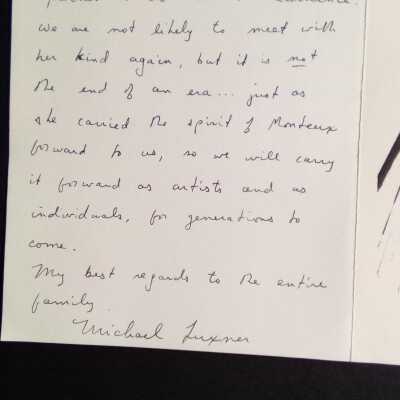 we are not likely to meet with
her kind again, but it is not
the end of an era... just as
she carried the spirit of Monteux
forward to us, so we will carry
it forward as artists and as
individuals, for generations to
come.
My best regards to the entire
family.
Michael Luxner